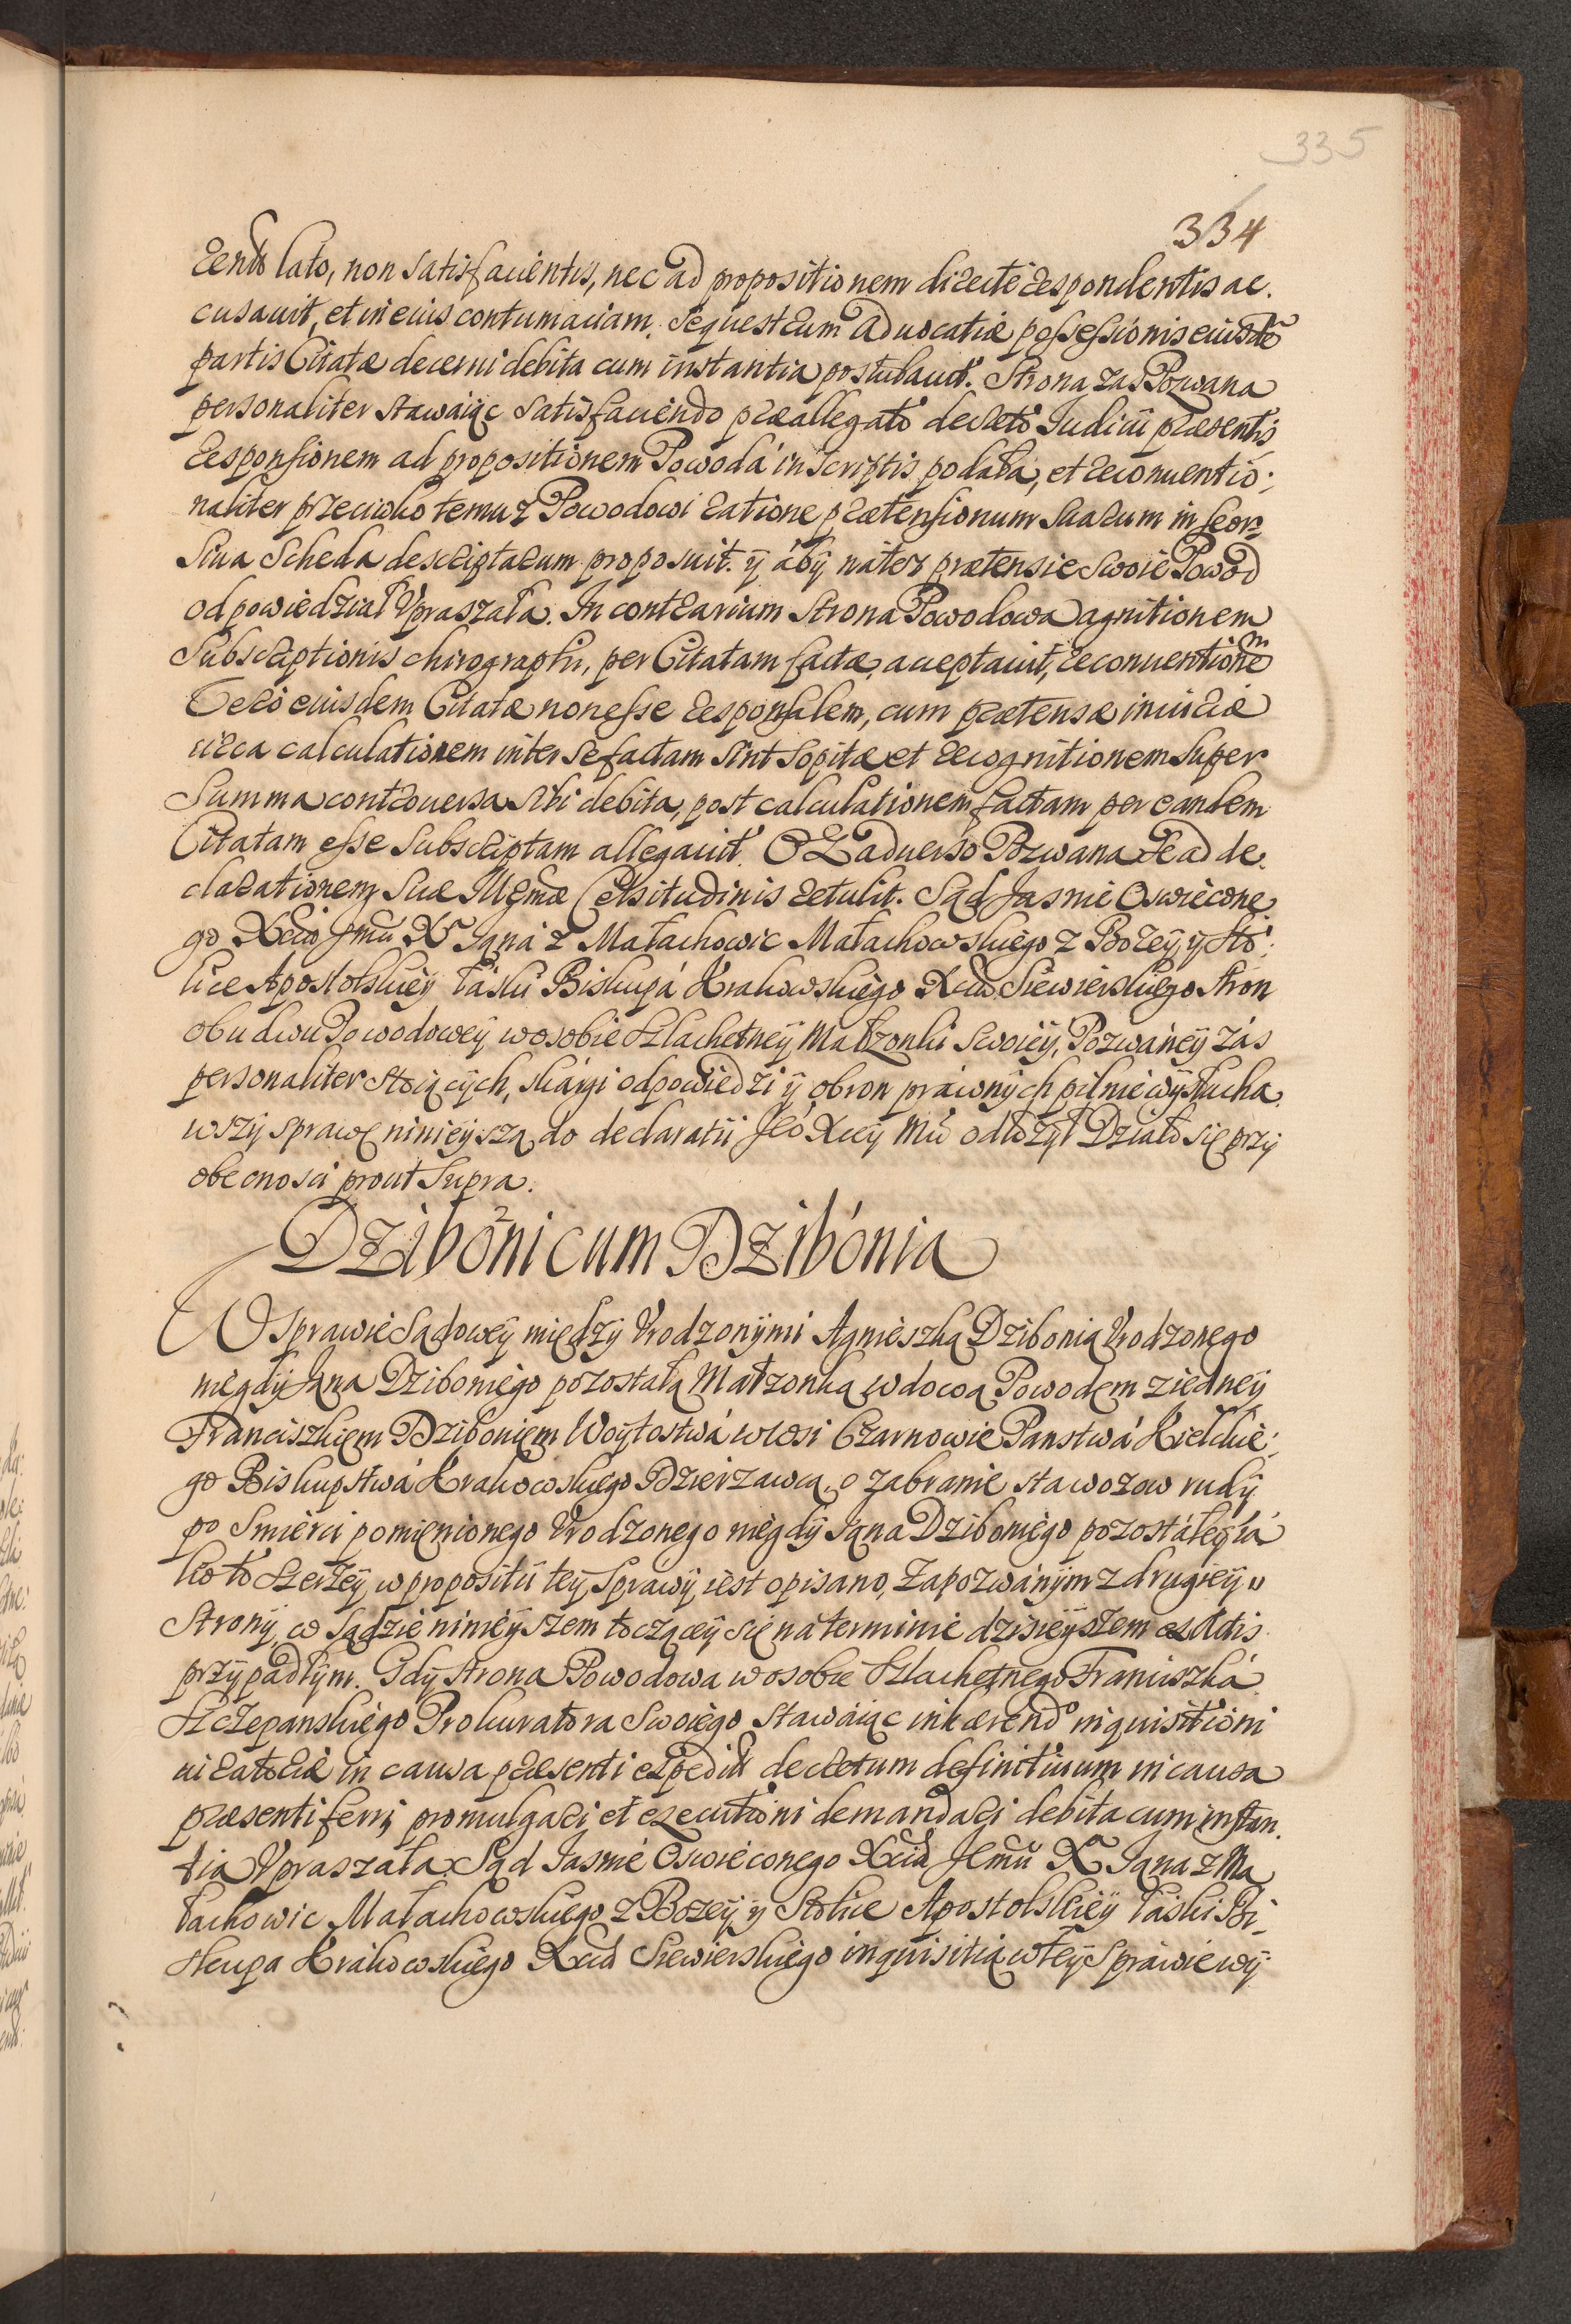 335
334
rendo lato, non satisfacientis, nec ad propositionem directe respondentis ac.
cusauit, et in eius contumaciam. Sequestrum Aduocatiæ possessionis eiusdē
partis Citatæ decerni debita cum instantia postulauit. Strona zas Pozwana
personaliter stawaiąc satisfaciendo præallegato decreto Iudicii præsentis
responsionem ad propositionem Powodá in scriptis podała, et reconuentio:
naliter przeciwko temuz Powodowi ratione prætensionum suarum in seor=
siua scheda descriptarum proposuit. ÿ ábÿ náter prætensie swoie Powod
odpowiedział Vpraszała. In contrarium Strona Powodowa agnitionem
subscriptionis chirographi, per Citatam factæ, acceptauit, reconuentionem
vero eiusdem Citatæ non esse responsalem, cum prætensæ iniuriæ
circa calculationem inter se factam sint sopitæ et recognitionem super
summa controuersa sibi debita, post calculationem factam per eandem
Citatam esse subscriptam allegauit. Ex aduerso Pozwana se ad de.
clarationem Suæ Illmæ Celsitudinis retulit. Sąd Jasnie Oswiecone
go Xcia Jmci Xa Janá z Małachowic Małachowskiego z Bożeÿ ÿ Sto:
lice Apostolskieÿ łáski Biskupá Krakowskiego Xcia Siewierskiego stron
obudwu Powodoweÿ w osobie Szlachetneÿ Małzonki swoieÿ, Pozwáneÿ zás
personaliter stoiącÿch, skárgi odpowiedzi ÿ obron práwnÿch pilnie wÿsłucha.
wszÿ sprawę ninieÿszą do declaratii Jeo Xcey Mci odłożÿł Działo się przÿ
obecnosci prout supra.
Dziboni cum Dzibonia
W sprawie Sądoweÿ międzÿ Vrodzonÿmi Agnieszką Dzibonią Vrodzonego
niegdÿ Jana Dziboniego pozostałą Małzonką wdową Powodem z iedneÿ
Franciszkiem Dzibonięm Woÿtostwá w wsi Czarnowie Panstwá Kielckie:
go Biskupstwá Krakowskiego Dzierzawcą, o zabranie stawozow rudÿ
po smierci pomięnionego Vrodzonego niegdÿ Jana Dziboniego pozostáłeÿ iá
ko to szerzeÿ w propositii teÿ sprawÿ iest opisano, Zapozwánÿm z drugieÿ
stronÿ, w Sądzie ninieÿszem toczączeÿ się ná terminie dzisieÿszem ex Actis
przÿpadłÿm. Gdÿ strona Powodowa w osobie Szlachetnego Franciszká
Szczepanskiego Prokuratora swoiego stawáiąc inhærendo inquisitioni
iuratoriæ in causa præsenti expeditæ decretum definitiuum in causa
præsenti ferri, promulgari et executioni demandari debita cum instan.
tia Vpraszała. Sąd Iasnie Oswieconego Xcia Jemci Xa Jana z Ma
łachowic Małachowskiego z Bozeÿ ÿ Stolice Apostolskieÿ łáski Bi
skupa Krákowskiego Xcia Siewierskiego inquisitią w teÿ sprawie wÿ